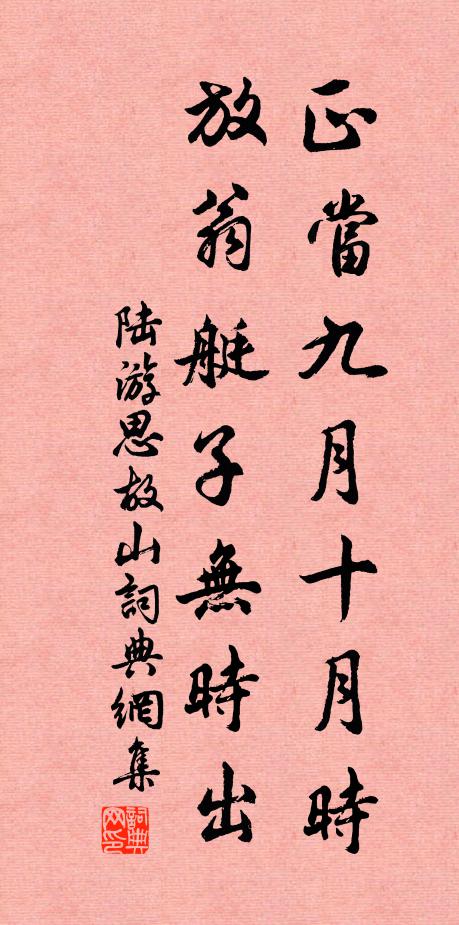 正當九月十月時
放翁艇子無時出
陆游思故山詞典網集
詞典网印